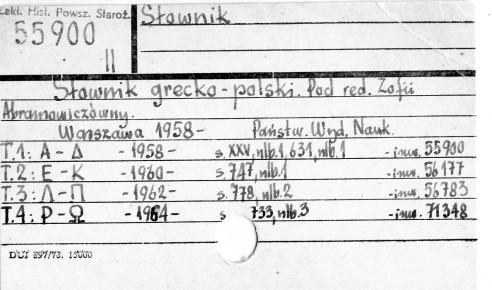 Zakł. Hist. Powsz. Staroż.
55900
II
Słownik
Słownik grecko-polski. Pod red. Zofii
Abramowiczówny.
Warszawa 1958- Państw. Wyd. Nauk.
T.1: A-Δ -1958- s. XXV, nlb.1, 631, nlb.1 -inw. 55900
T.2: E-K -1960- s. 747, nlb.1 -inw. 56177
T.3: Λ-Π -1962- s. 778, nlb.2 -inw. 56783
T.4: P-Ω -1964- s 733, nlb.3 -inw. 71348
DUJ 897/73. 15000